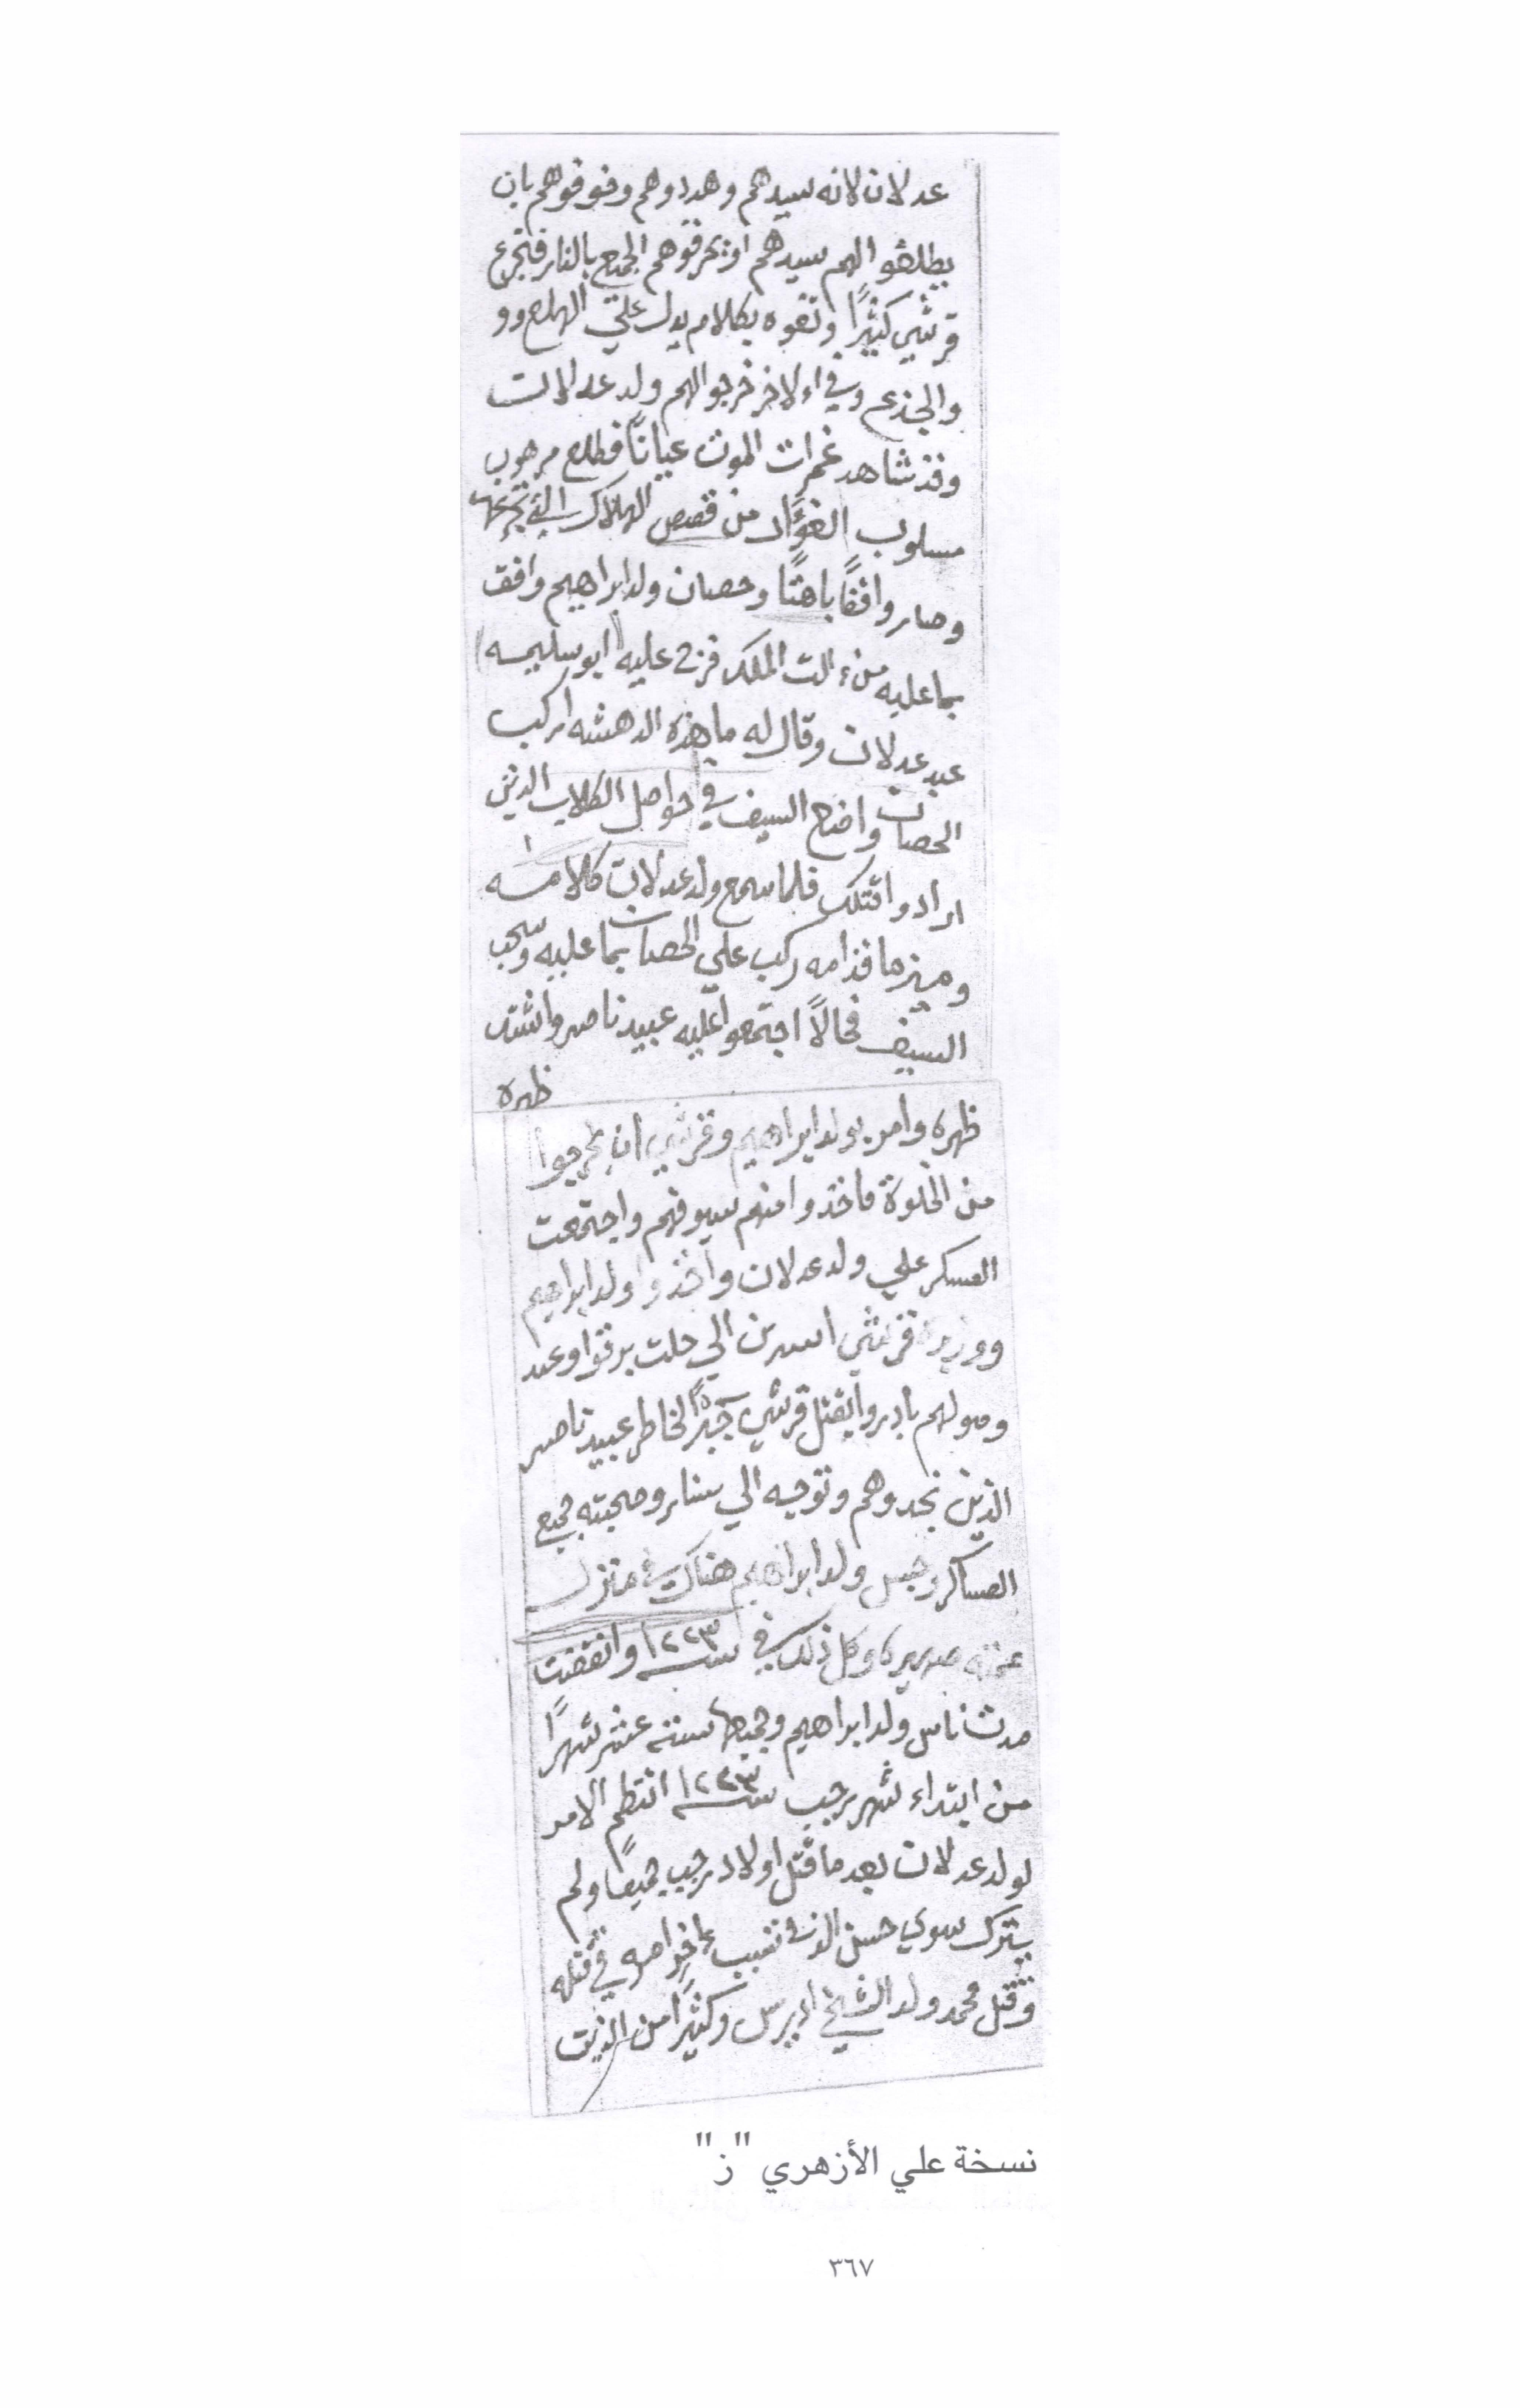 عدلان لانه سيدهم وهددوهم وفوقوهم بان
يطلقو الهم سيدهم او يحرقوهم الجميع بالنار فتجرع
قرشي كثيرًا وتفوه بكلام يدل علي الهلع وو
والجذع وفي اءلاخر خرجوا لهم ولد عدلان
وقد شاهد غمرات الموت عيانًا فطلع مرهوب
مسلوب الفؤاد من قصص الهلاك التي تجرعها
وصار واقفًا باهتًا وحصان ولد ابراهيم واقف
بما عليه من ءالت الملك فزع عليه (ابو سليمه)
عبد عدلان وقال له ما هذه الدهشه اركب
الحصان واضح السيف في حواصل الكلاب الذين
ارادو اقتلك فلما سمع ولد عدلان كلامه
وميز ما قدامه ركب علي الحصان بما عليه وسحب
السيف فحالاً اجتمعوا عليه عبيد ناصر واشتد
ظهره
ظهره وامر بولد ابراهيم وقرشي ان يخرجوا
من الخلوة فاخذوا منهم سيوفهم واجتمعت
العسكر علي ولد عدلان واخذوا ولد ابراهيم
ووزيره قرشي اسرين الي حلت برقوا وعند
وصولهم بادروا بقتل قرشي جبرًا لخاطر عبيد ناصر
الذين نجدوهم وتوجه الي سنار وصحبته جميع
العساكر وحبس ولد ابراهيم هناك في منزل
عمته وكل ذلك في سنه ١٢٢٣ وانقضت
مدت ناس ولد ابراهيم وجميعها سته عشر شهرًا
من ابتداء شهر رجب سنه ١٢٢٣ انتظم الامر
لولد عدلان بعد ما قتل اولاد رجب جميعًا ولم
يترك سوي حسن الذي تسبب في قتله
وقتل محمد ولد الشيخ وكثيرًا من الذين
نسخة علي الأزهري "ز"
٣٦٧